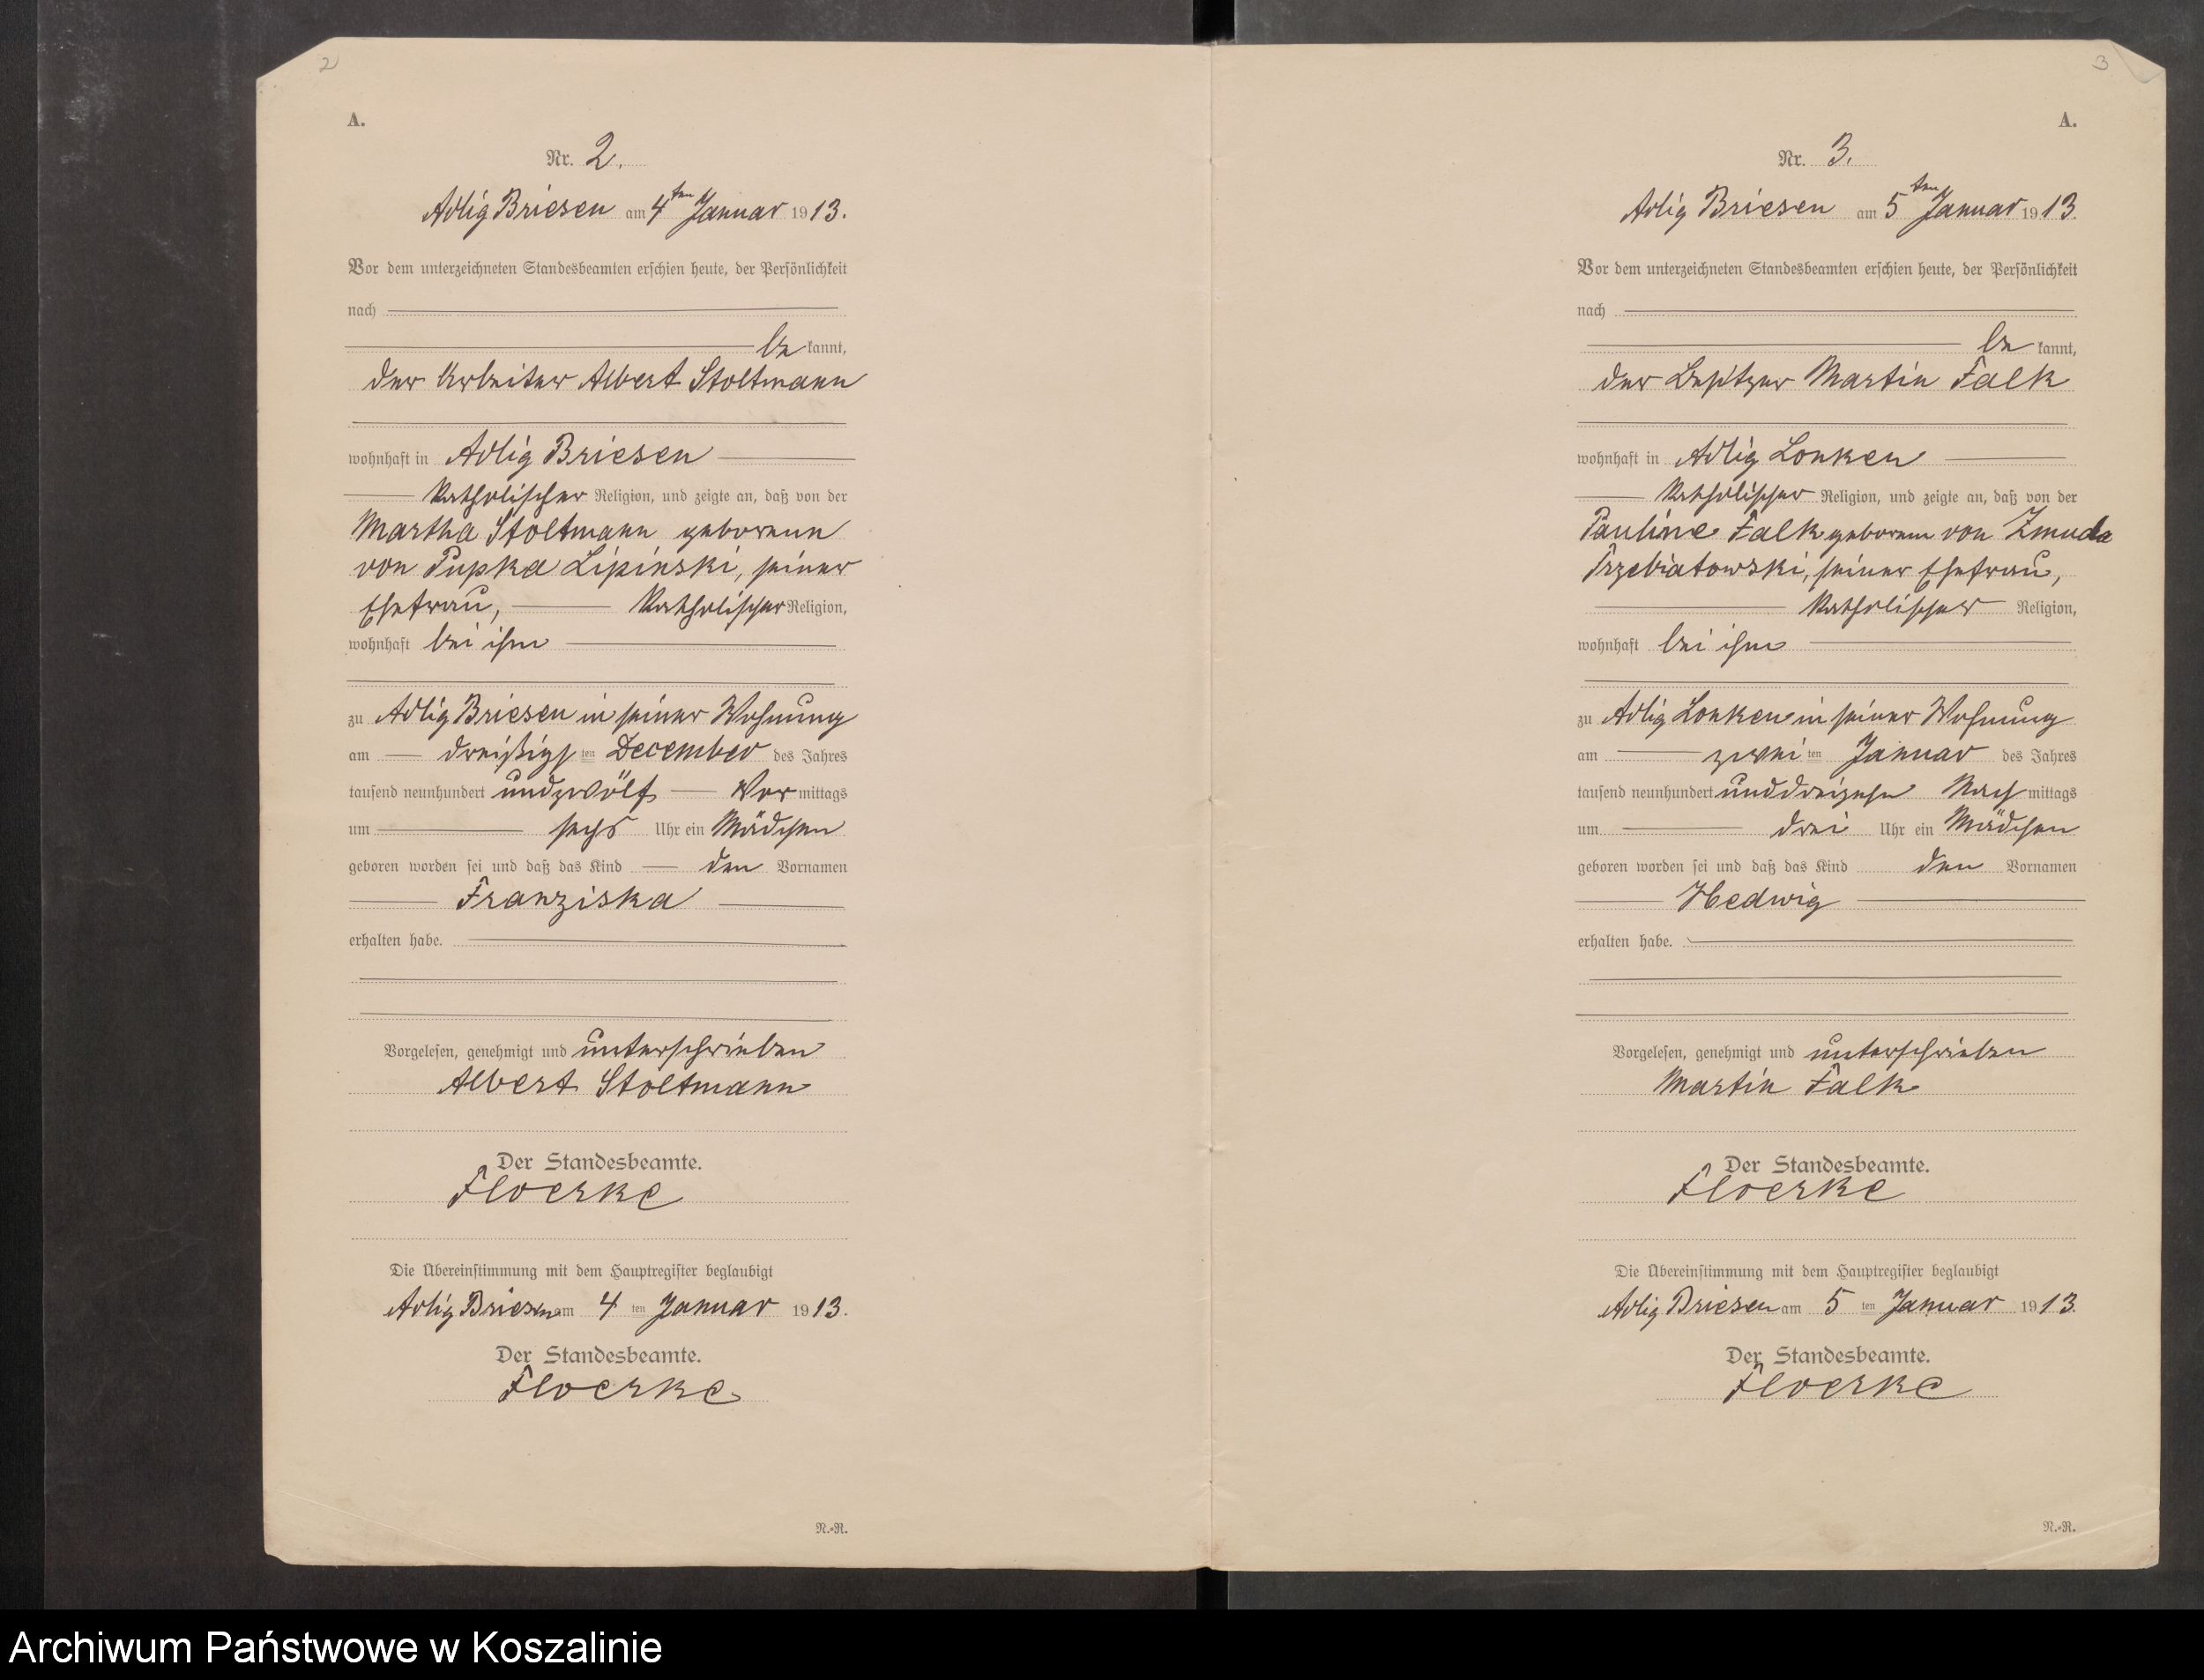 2
A.
Nr. 2.
Adlig Briesen am 4ten Januar 1913.
Vor dem unterzeichneten Standesbeamten erschien heute, der Persönlichkeit
nach
be kannt,
der Arbeiter Albert Stoltmann
wohnhaft in Adlig Briesen
katholischer Religion, und zeigte an, daß von der
Martha Stoltmann geborenen
von Pupka Lipinski, seiner
Ehefrau, katholischer Religion,
wohnhaft bei ihm
zu Adlig Briesen in seiner Wohnung
am dreißigs ten December des Jahres
tausend neunhundert undzwölf Vor mittags
um sechs Uhr ein Mädchen
geboren worden sei und daß das Kind den Vornamen
Franziska
erhalten habe.
Vorgelesen, genehmigt und unterschrieben
Albert Stoltmann
Der Standesbeamte.
Floerke
Die Übereinstimmung mit dem Hauptregister beglaubigt
Adlig Briesen am 4 ten Januar 1913.
Der Standesbeamte.
Floerke
N.-R.
3
A.
Nr. 3.
Adlig Briesen am 5ten Januar 1913.
Vor dem unterzeichneten Standesbeamten erschien heute, der Persönlichkeit
nach
be kannt,
der Besitzer Martin Falk
wohnhaft in Adlig Lonken
katholischer Religion, und zeigte an, daß von der
Pauline Falk geborenen von Zmuda
Trzebiatowski, seiner Ehefrau,
katholischer Religion,
wohnhaft bei ihm
zu Adlig Lonken in seiner Wohnung
am zwei ten Januar des Jahres
tausend neunhundert unddreizehn Nach mittags
um drei Uhr ein Mädchen
geboren worden sei und daß das Kind den Vornamen
Hedwig
erhalten habe.
Vorgelesen, genehmigt und unterschrieben
Martin Falk
Der Standesbeamte.
Floerke
Die Übereinstimmung mit dem Hauptregister beglaubigt
Adlig Briesen am 5 ten Januar 1913.
Der Standesbeamte.
Floerke
N.-R.
Archiwum Państwowe w Koszalinie